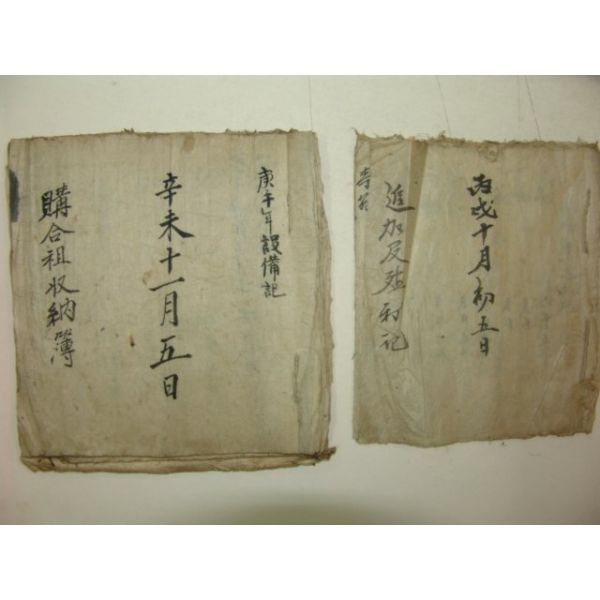 庚午年設備記
辛未十一月五日
購合租収納簿
丙戌十月初五日
進加及殖利記